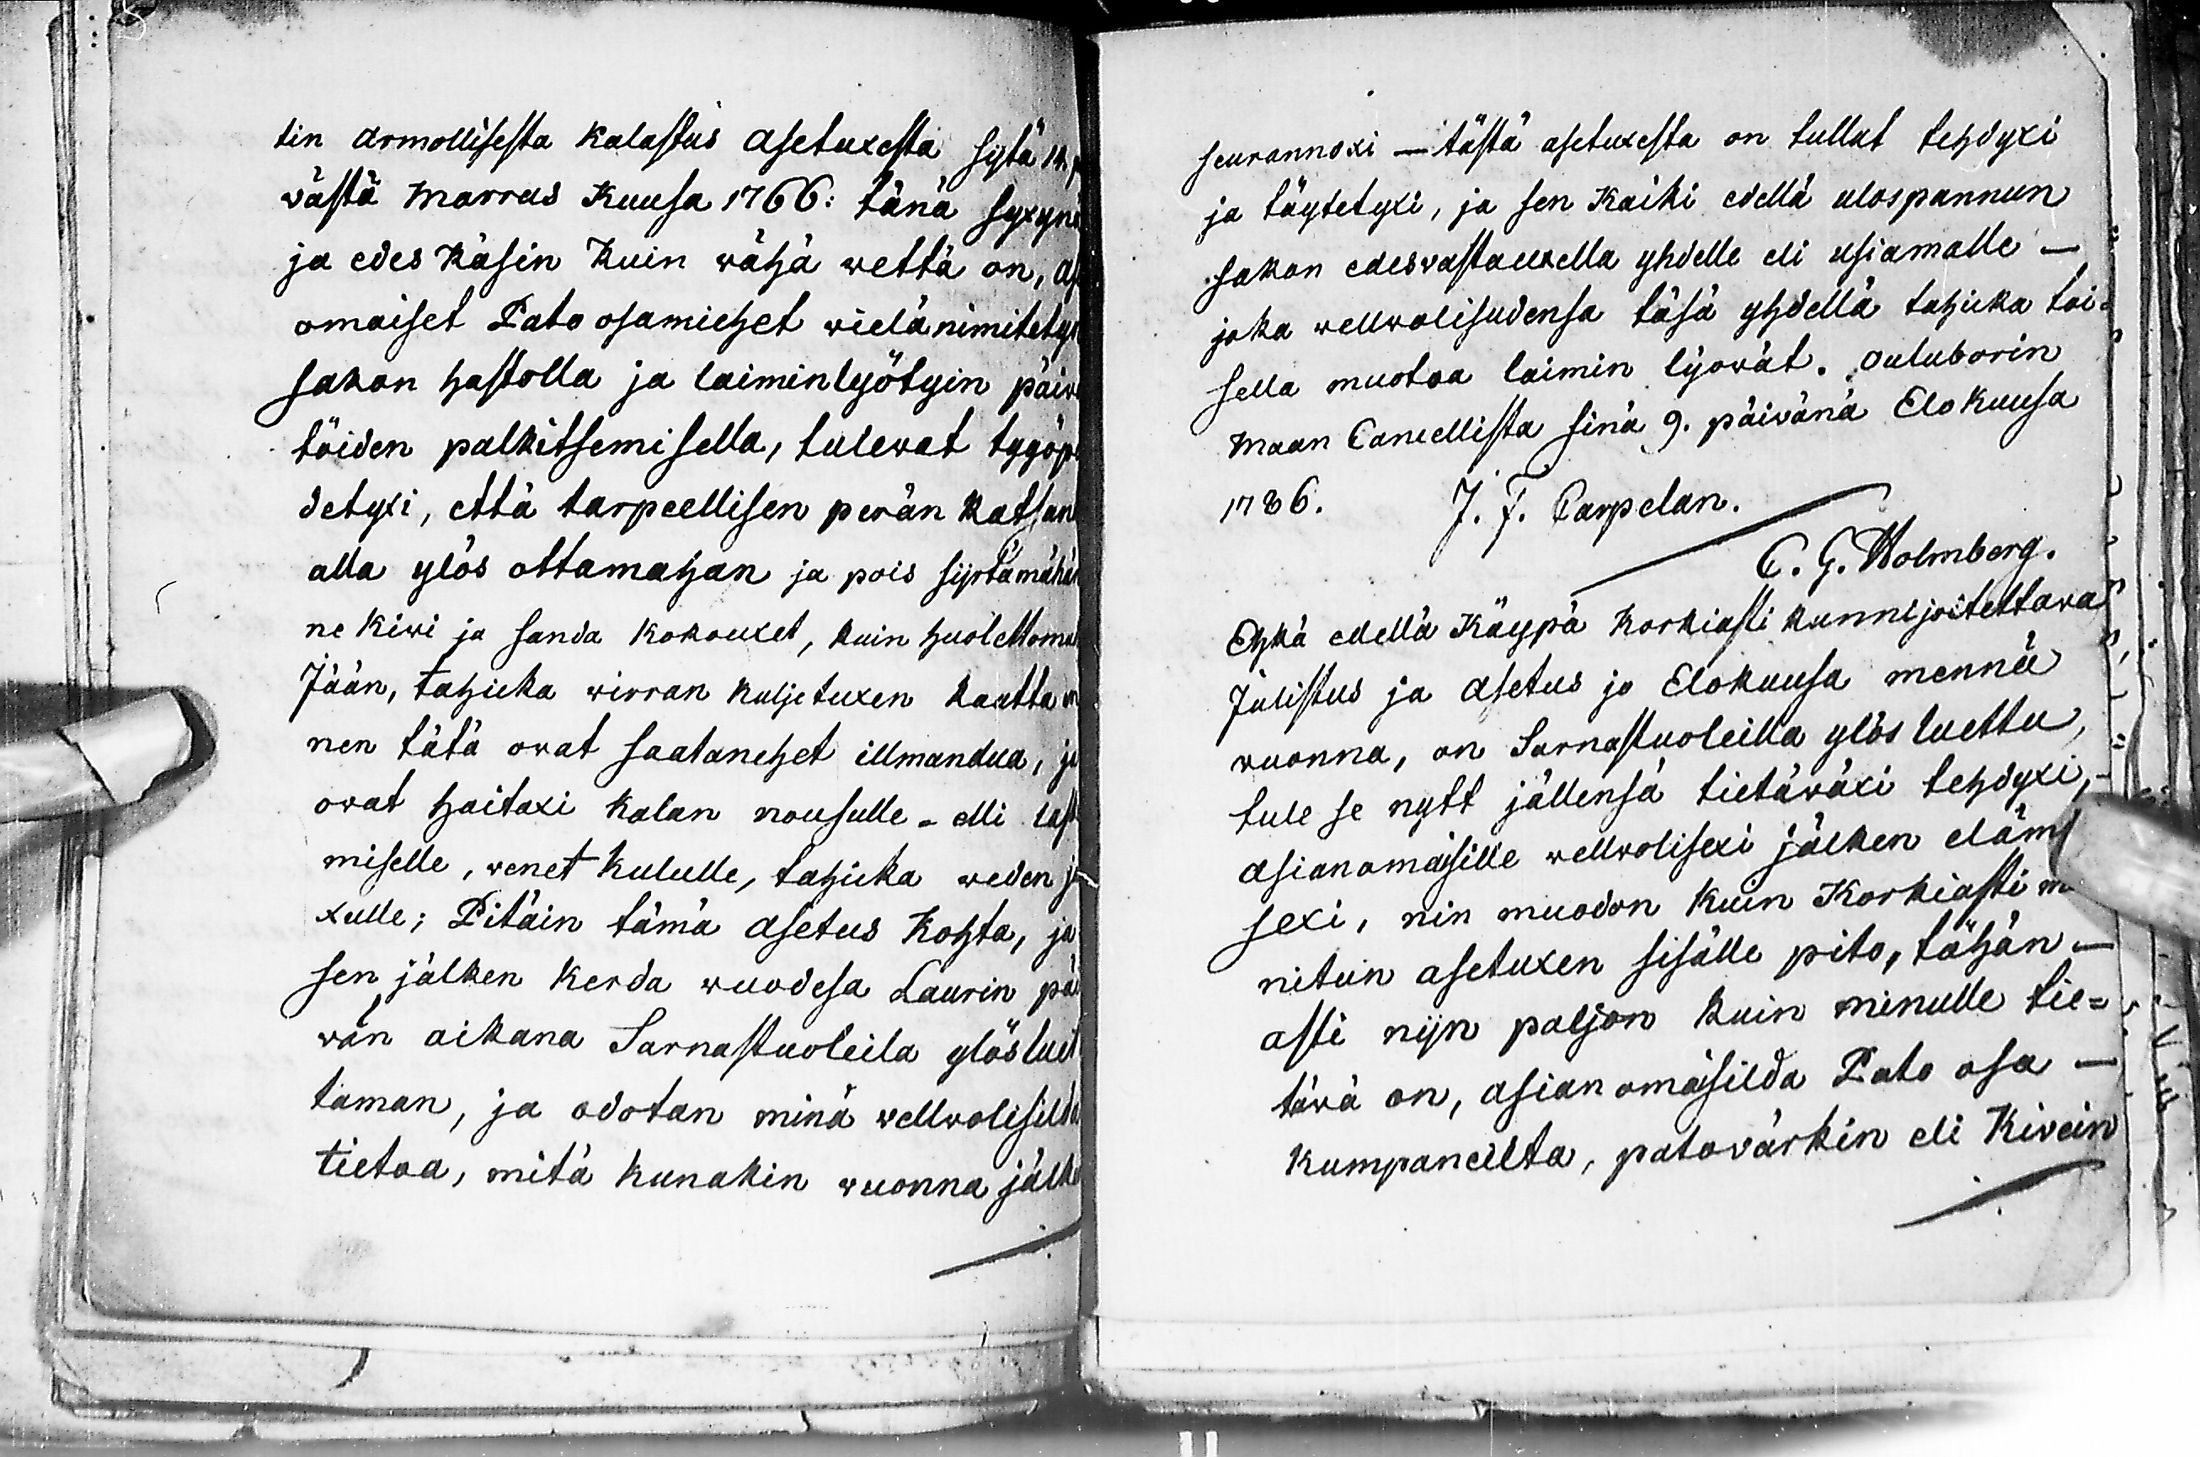 tin armollisesta Kalastus asetuxesta sytä 14. p
västä Marras Kuusa 1766: tänä syxynä
ja edes käsin kuin wähä wettä on, as
omaiset Pato osamiehet wielä nimitetyn
sakon hastolla ja laiminlyötyin päiwä
töiden palkitsemisella, tulewat tygöp
detyxi, että tarpeellisen perän katsan
alla ylös ottamahan ja pois siirtämähän
ne kiwi ja sanda kokouxet, kuin huolettoma
Jään, tahicka wirran kuljetuxen kautta
nen tätä owat saatanehet illmandua, ja
owat haitaxi kalan nousulle - elli last
miselle, wenet kululle, tahicka weden j
xulle; Pitäin tämä asetus Kohta, ja
sen jälken kerda wuodesa Laurin päi
wän aikana Sarnastuoleila ylösluet
taman, ja odotan minä wellwolisilda
tietoa, mitä kunakin wuonna jälke
seurannoxi — tästä asetuxesta on tullut tehdyxi
ja täytetyxi, ja sen Kaiki edellä ulospannun
sakon edesvastauxella yhdelle eli usiamalle —
joka wellwolisudensa täsä yhdellä tahicka toi-
sella muotoa laimin lyöwät. Ouluborin
maan Cancellista sinä 9. päiwänä Elokuusa
1786. J. F. Carpelan.
C. G. Holmberg.
Ehkä edellä Käypä korkiasti kunnijoitettawa
Julistus ja asetus jo Elokuusa mennä
wuonna, on Sarnastuoleilla ylös luettu,
tule se nytt jällensä tietäwäxi tehdyxi,
asianomaisille wellwolisexi jälken eläm
sexi, nin muodon kuin Korkiasti m
nitun asetuxen sisälle pito, tähän —
asti nijn paljon kuin minulle tie=
täwä on, asianomaisilda Pato osa —
kumpaneilta, patovärkin eli Kivein